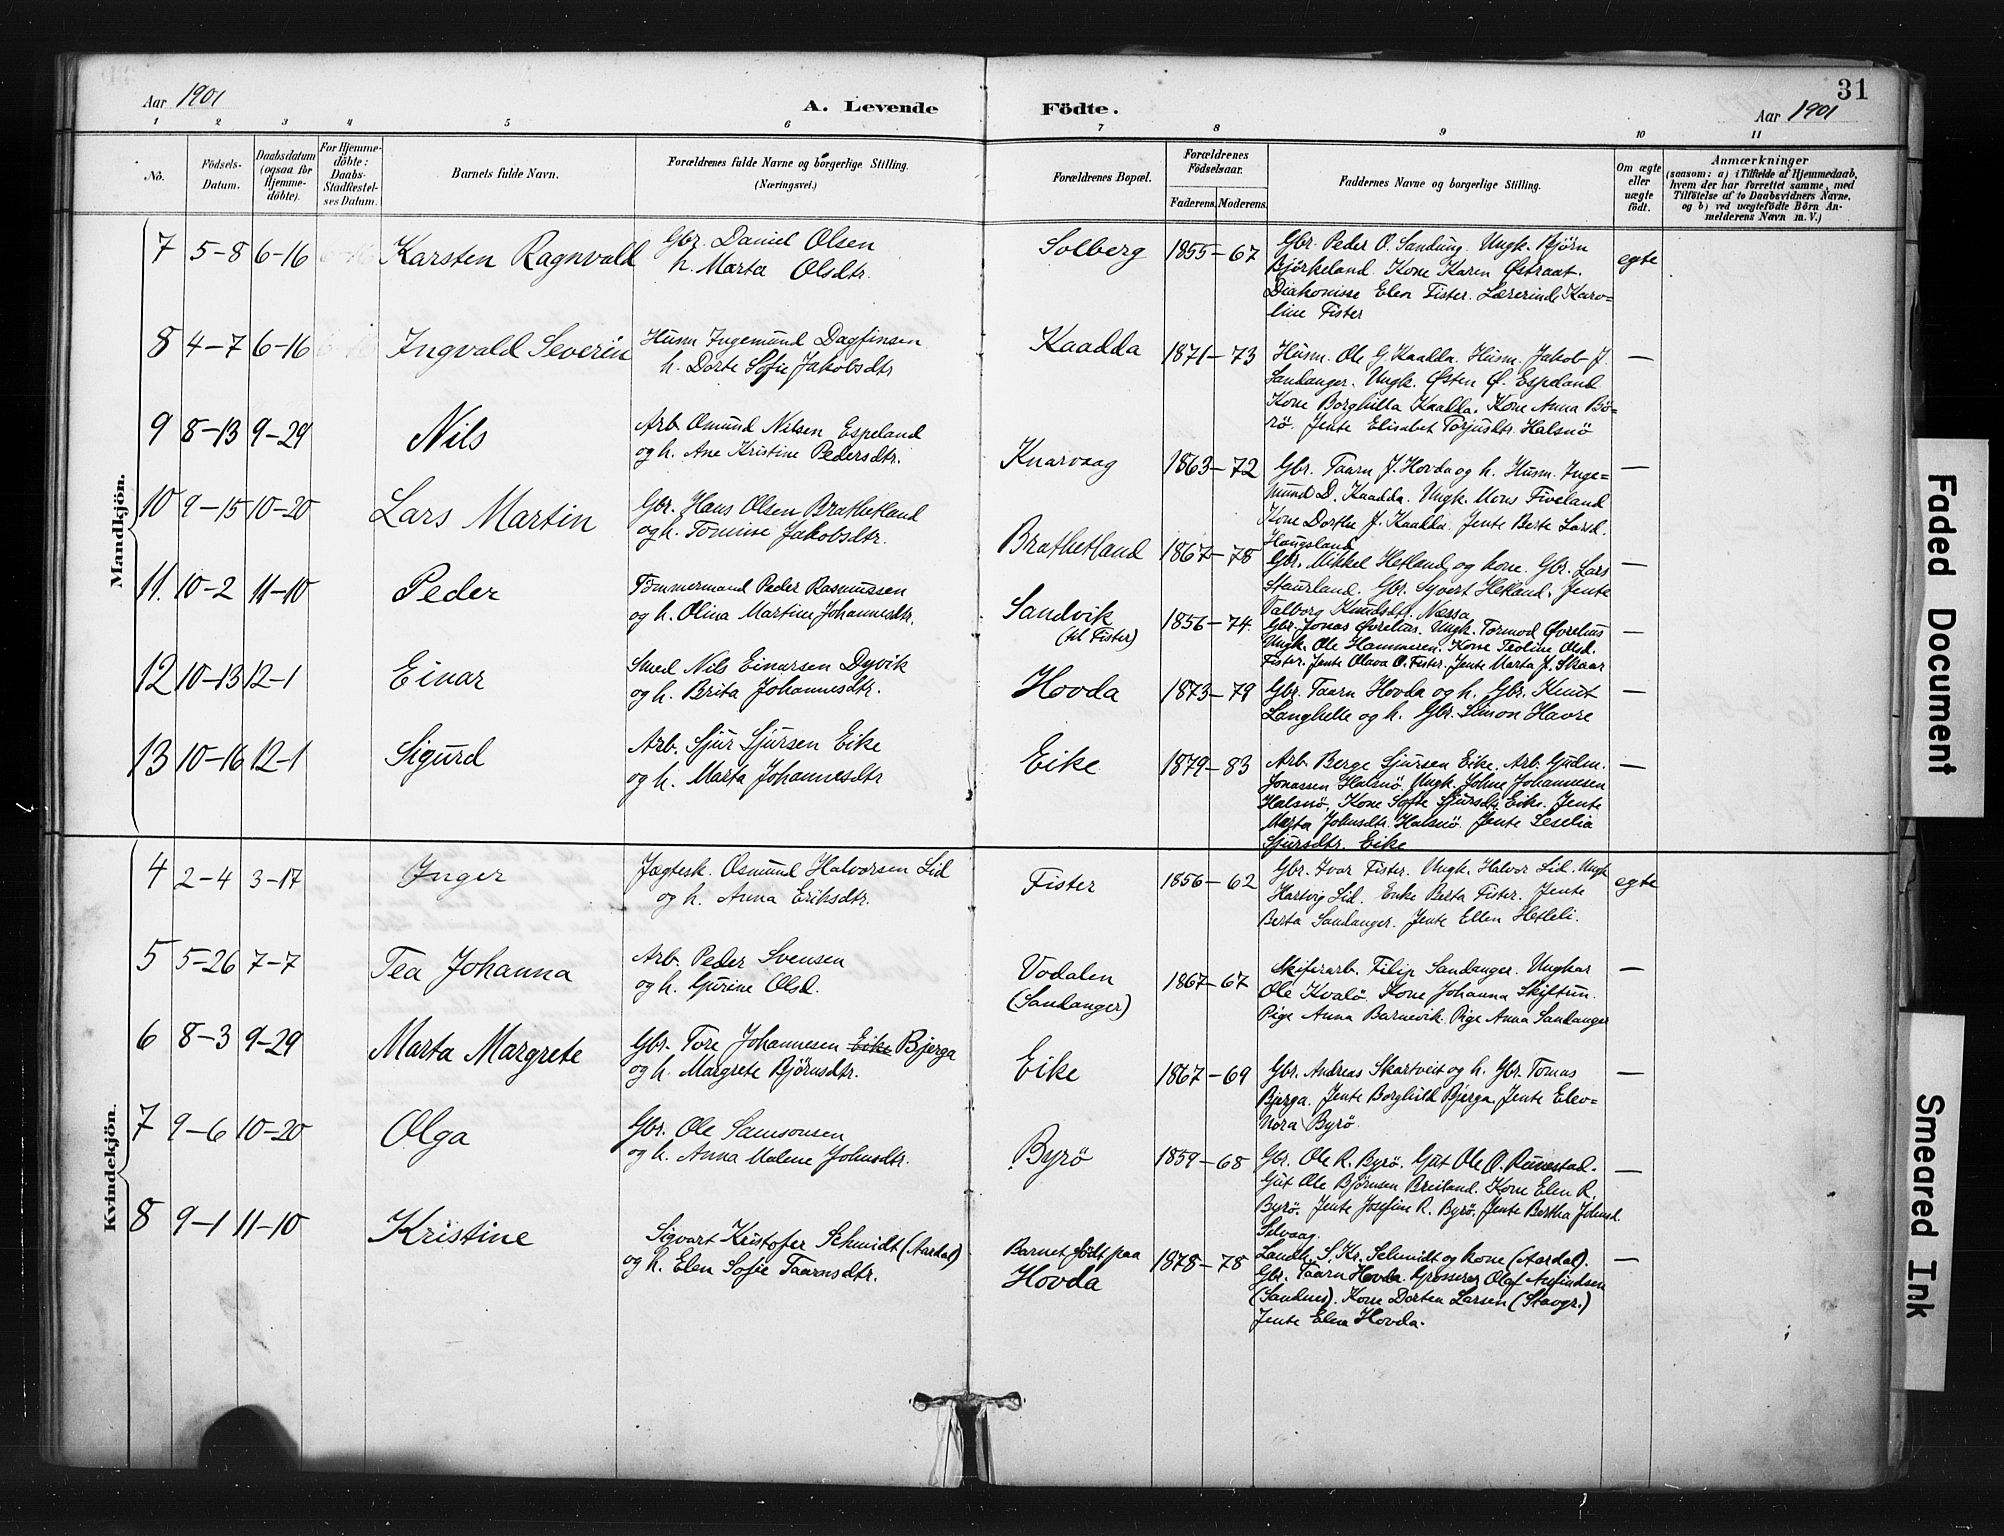 31
Aar 1901
A. Levende Födte.
Aar 1901
1 2 3 4 5 6 7 8 9 10 11
No.
Födsels-Datum.
Daabsdatum (ogsaa for Hjemmedöbte).
For Hjemmedöbte: Daabs-Stadfæstelses Datum.
Barnets fulde Navn.
Forældrenes fulde Navne og borgerlige Stilling.
(Næringsvei.)
Forældrenes Bopæl.
Forældrenes Födselsaar.
Faderens. Moderens.
Faddernes Navne og borgerlige Stilling.
Om ægte eller uægte födt.
Anmærkninger
(saasom: a) i Tilfælde af Hjemmedaab,
hvem der har forrettet samme, med
Tilföielse af to Daabsvidners Navne,
og b) ved uægtefödte Börn An-
melderens Navn m. V.)
Mandkjön.
7 5-8 6-16 Karsten Ragnvald
Gbr. Daniel Olsen
h. Marta Olsdtr.
Solberg 1855-67
Gbr. Peder O. Sandung. Ungk. Bjørn
Bjørkeland. Kone Karen Østraat.
Diakonisse Elen Fister. Lærerinde Karo-
line Fister
egte
8 4-7 6-16 Ingvald Severin
Husm. Ingemund Dagfinsen
h. Dorte Sofie Jakobsdtr
Kaadda 1871-73
Husm. Ole G. Kaadda. Husm. Jakob J.
Sandanger. Ungk. Østen Ø. Espeland
Kone Borghilla Kaadda. Kone Anna Bö-
rö. Jente Elisabet Torjusdtr. Halsnö
—
9 8-13 9-29 Nils
Arb. Omund Nilsen Espeland
og h. Ane Kristine Pedersdtr.
Knarvaag 1863-72
Gbr. Taarn J. Hovda og h. Husm. Inge-
mund D. Kaadda. Ungk. Mons Fiveland
Kone Dorthe J. Kaadda. Jente Berte Larsd.
Haugsland
—
10 9-15 10-20 Lars Martin
Gbr. Hans Olsen Brathetland
og h. Tomine Jakobsdtr.
Brathetland 1867-78
Gbr. Mikkel Hetland og kone. Gbr. Lars
Staurland. Gbr. Sjvert Hetland. Jente
Valborg Knudsdtr. Næssa
—
11. 10-2 11-10 Peder
Tömmermand Peder Rasmussen
og h. Olina Martine Johannesdtr.
Sandvik
(til Fister)
1856-74.
Gbr. Jonas Øvrelius. Ungk. Tormod Øvrelius
Ungk. Ole Hammersen. Kone Teoline Olsd.
Fister. Jente Olava O. Fister. Jente Marta J. Skaar
—
12 10-13 12-1 Einar
Smed Nils Einarsen Dyvik
og h. Brita Johannesdtr.
Hovda 1873-79
Gbr. Taarn Hovda og h. Gbr. Knut
Langhelle og h. Gbr. Simon Havre
—
13 10-16 12-1 Sigurd
Arb. Sjur Sjursen Eike
og h. Marta Johannesdtr
Eike 1879-83
Arb. Berge Sjursen Eike. Arb. Gudm.
Jonassen Halsnö. Ungk. Johne Johannesen
Halsnö. Kone Sofie Sjursdtr Eike. Jente
Marta Johnsdtr. Halsnö. Jente Seselia
Sjursdtr. Eike
—
Kvindekjön.
4 2-4 3-17 Inger
Jægtesk. Osmund Halvorsen Lid
og h. Anna Eriksdtr.
Fister 1856-62
Gbr. Ivar Fister. Ungk. Halvor Lid. Ungk
Hartvig Lid. Enke Berta Fister. Jente
Berta Sandanger. Jente Ellen Hetleli.
egte
5 5-26 7-7 Tea Johanna
Arb. Peder Svensen
og h. Gurine Olsd.
Vodalen
(Sandanger)
1867-67
Skiferarb. Filip Sandanger. Ungkar
Ole Kvalö. Kone Johanna Skiftun.
Pige Anna Barnevik. Pige Anna Sandanger
—
6 8-3 9-29 Marta Margrete
Gbr. Tore Johannesen Eike Bjerga
og h. Margrete Björnsdtr.
Eike 1867-69
Gbr. Andreas Skartveit og h. Gbr. Tomas
Bjerga. Jente Borghild Bjerga. Jente Eleo-
nora Byrö.
—
7 9-6 10-20 Olga
Gbr. Ole Samsonsen
og h. Anna Malene Johnsdtr.
Byrö 1859-68
Gbr. Ole R. Byrö. Gut Ole O. Runestad.
Gut Ole Björnsen Breiland. Kone Elen R.
Byrö. Jente Josefine R. Byrö. Jente Bertha Johnsd.
Selvaag.
—
8 9-1 11-10 Kristine
Sigvart Kristofer Schmidt (Aardal)
og h. Elen Sofie Taarnsdtr.
Barnet født paa
Hovda
1878-78
Landh. S. Kr. Schmidt og kone (Aardal).
Gbr. Taarn Hovda. Grosserer Olaf Anfindsen
(Sandnes). Kone Dorten Larsen (Stavgr.)
Jente Elen Hovda.
—
Faded Document
Smeared Ink